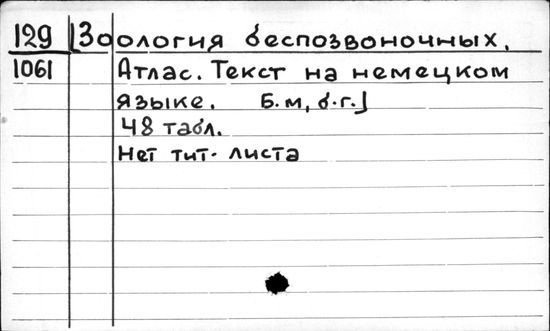 129 [Зоология беспозвоночных.
1061 Атлас. Текст на немецком
языке. Б.м, б.г.]
48 табл.
Нет тит. листа